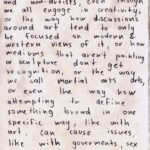 and non-artists, even though
we all engage in creativity,
or the way how discussions
around art tend to only
be focused on modern &
western views of it, or how
mediums that aren't painting
or sculpture don't get
recognition, or the way
we call martial arts arts,
or even the way how
attempting to define
something broad in one
specific way, like with
art, can cause issues,
like with governments, sex